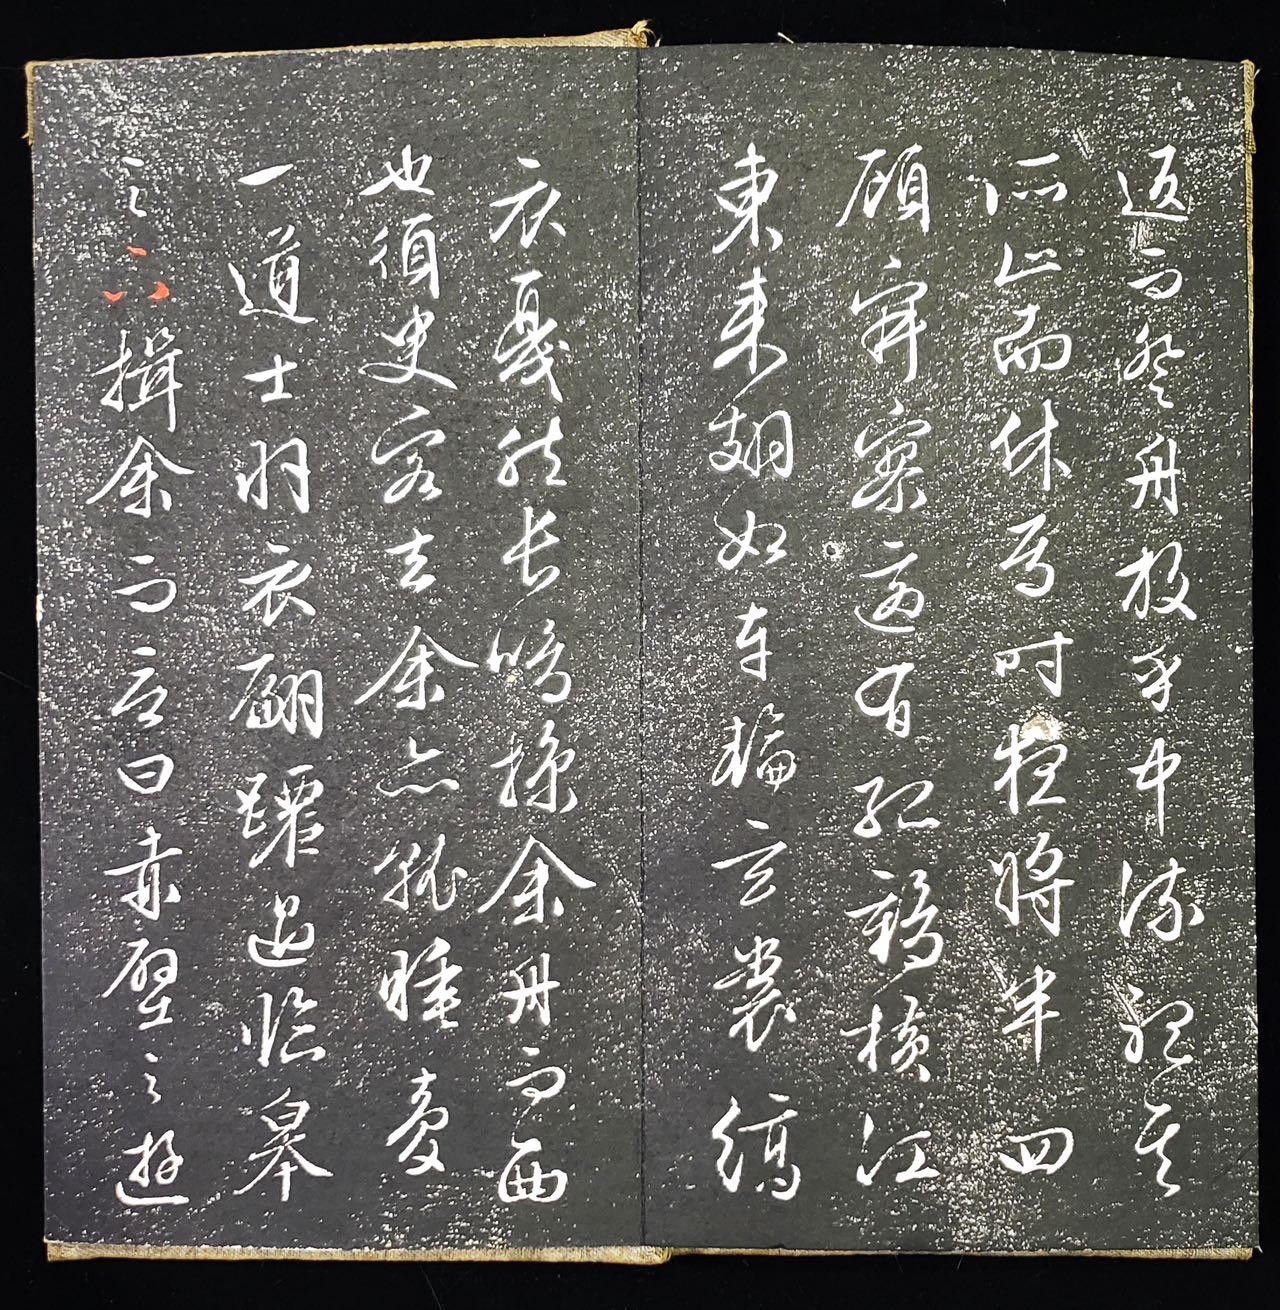 返而登舟放乎中流聽其
所止而休焉時夜將半四
顧寂寥適有孤鶴橫江
東來翅如車輪玄裳縞
衣戛然長鳴掠余舟而西
也須臾客去余亦就睡夢
一道士羽衣翩躚過臨皋
之下揖余而言曰赤壁之遊